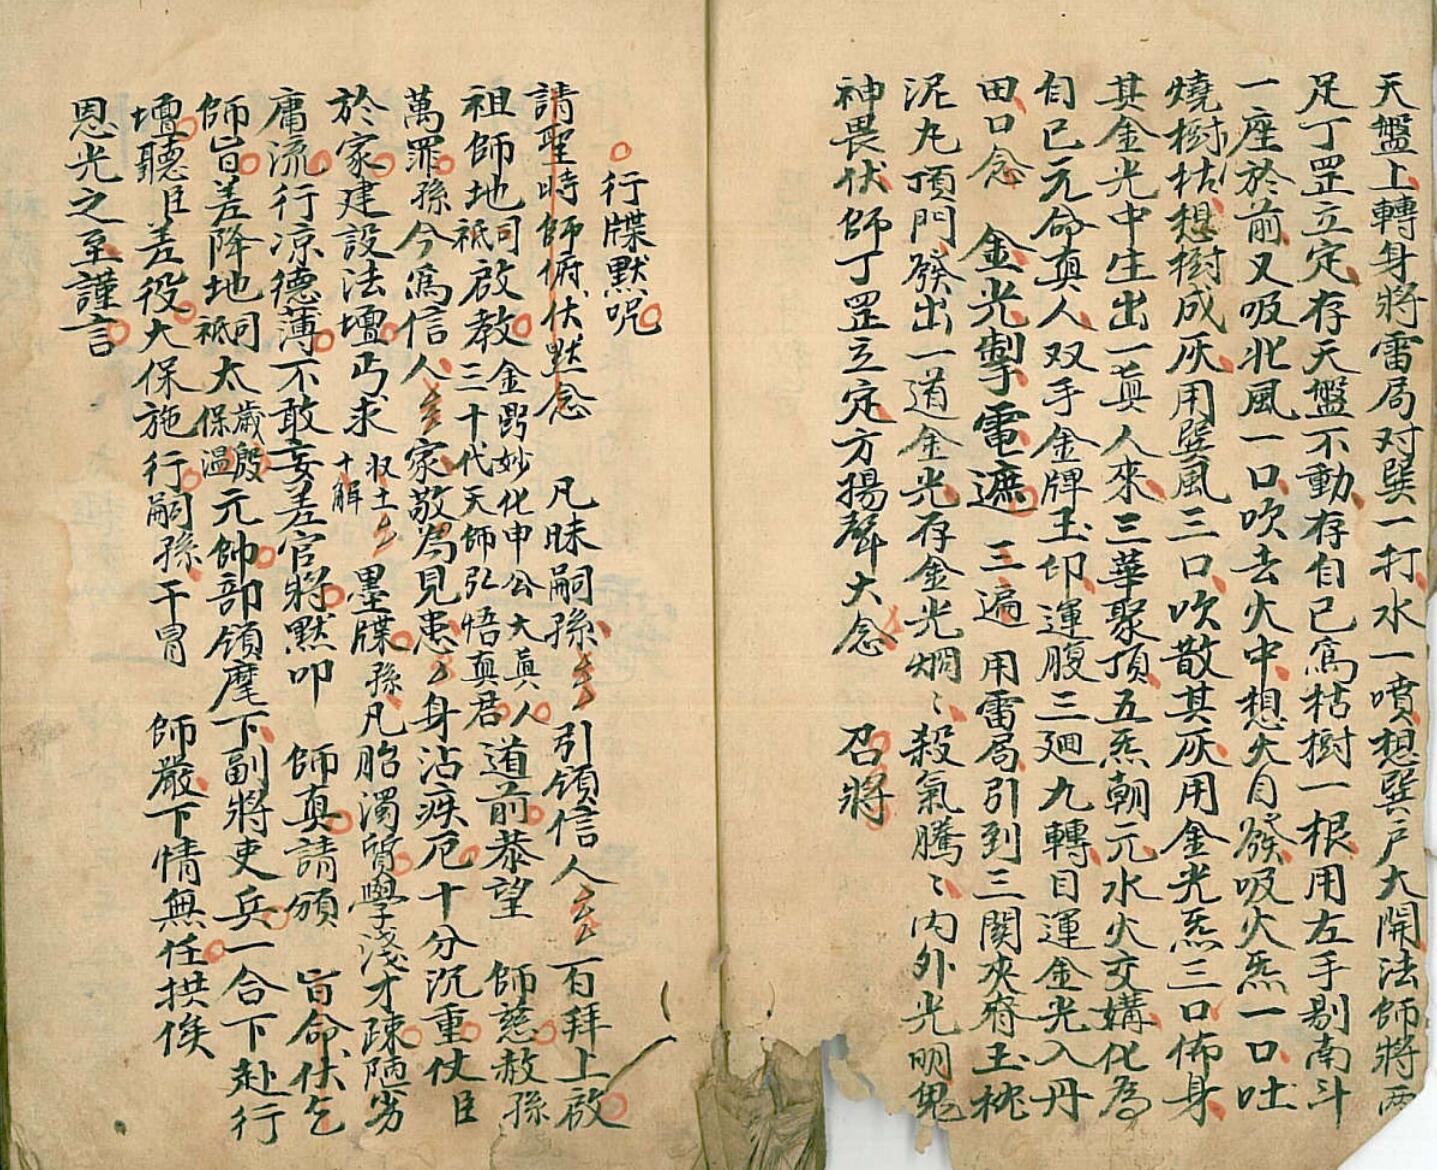 天盤上轉身將雷局对巽一打水一噴想巽戶大開法師將兩
足丁罡立定存天盤不動存自已為枯樹一根用左手剔南斗
一座於前又吸北風一口吹去火中想火自發吸火炁一口吐
燒樹枯想樹成灰用巽風三口吹散其灰用金光炁三口佈身
其金光中生出一真人來三華聚頂五炁朝元水火交媾化為
自已元命真人双手金牌玉印運腹三廻九轉目運金光入丹
田口念 金光掣電遮 三遍 用雷局引到三関夾脊玉枕
泥丸頂門發出一道金光存金光烱〻殺氣騰〻内外光明鬼
神畏伏師丁罡立定方揚聲大念 召將
行牒默呪
請聖時師俯伏默念 凡昧嗣孫 引領信人 百拜上啟
祖師地司祇啟教金野妙化申公大真人三十代天師弘悟真君道前恭望 師慈赦孫
萬罪孫今為信人 家敬為見患 身沾疾厄十分沉重仗臣
於家建設法壇丐求 収土十解 墨牒孫凡胎濁質學淺才疎陋劣
庸流行凉德薄不敢妄差官將默叩 師真請頒 旨命伏乞
師旨差降地司祇太歲殷保温元帥部領麾下副將吏兵一合下赴行
壇聽臣差役大保施行嗣孫干冒 師嚴下情無任拱俟
恩光之至謹言